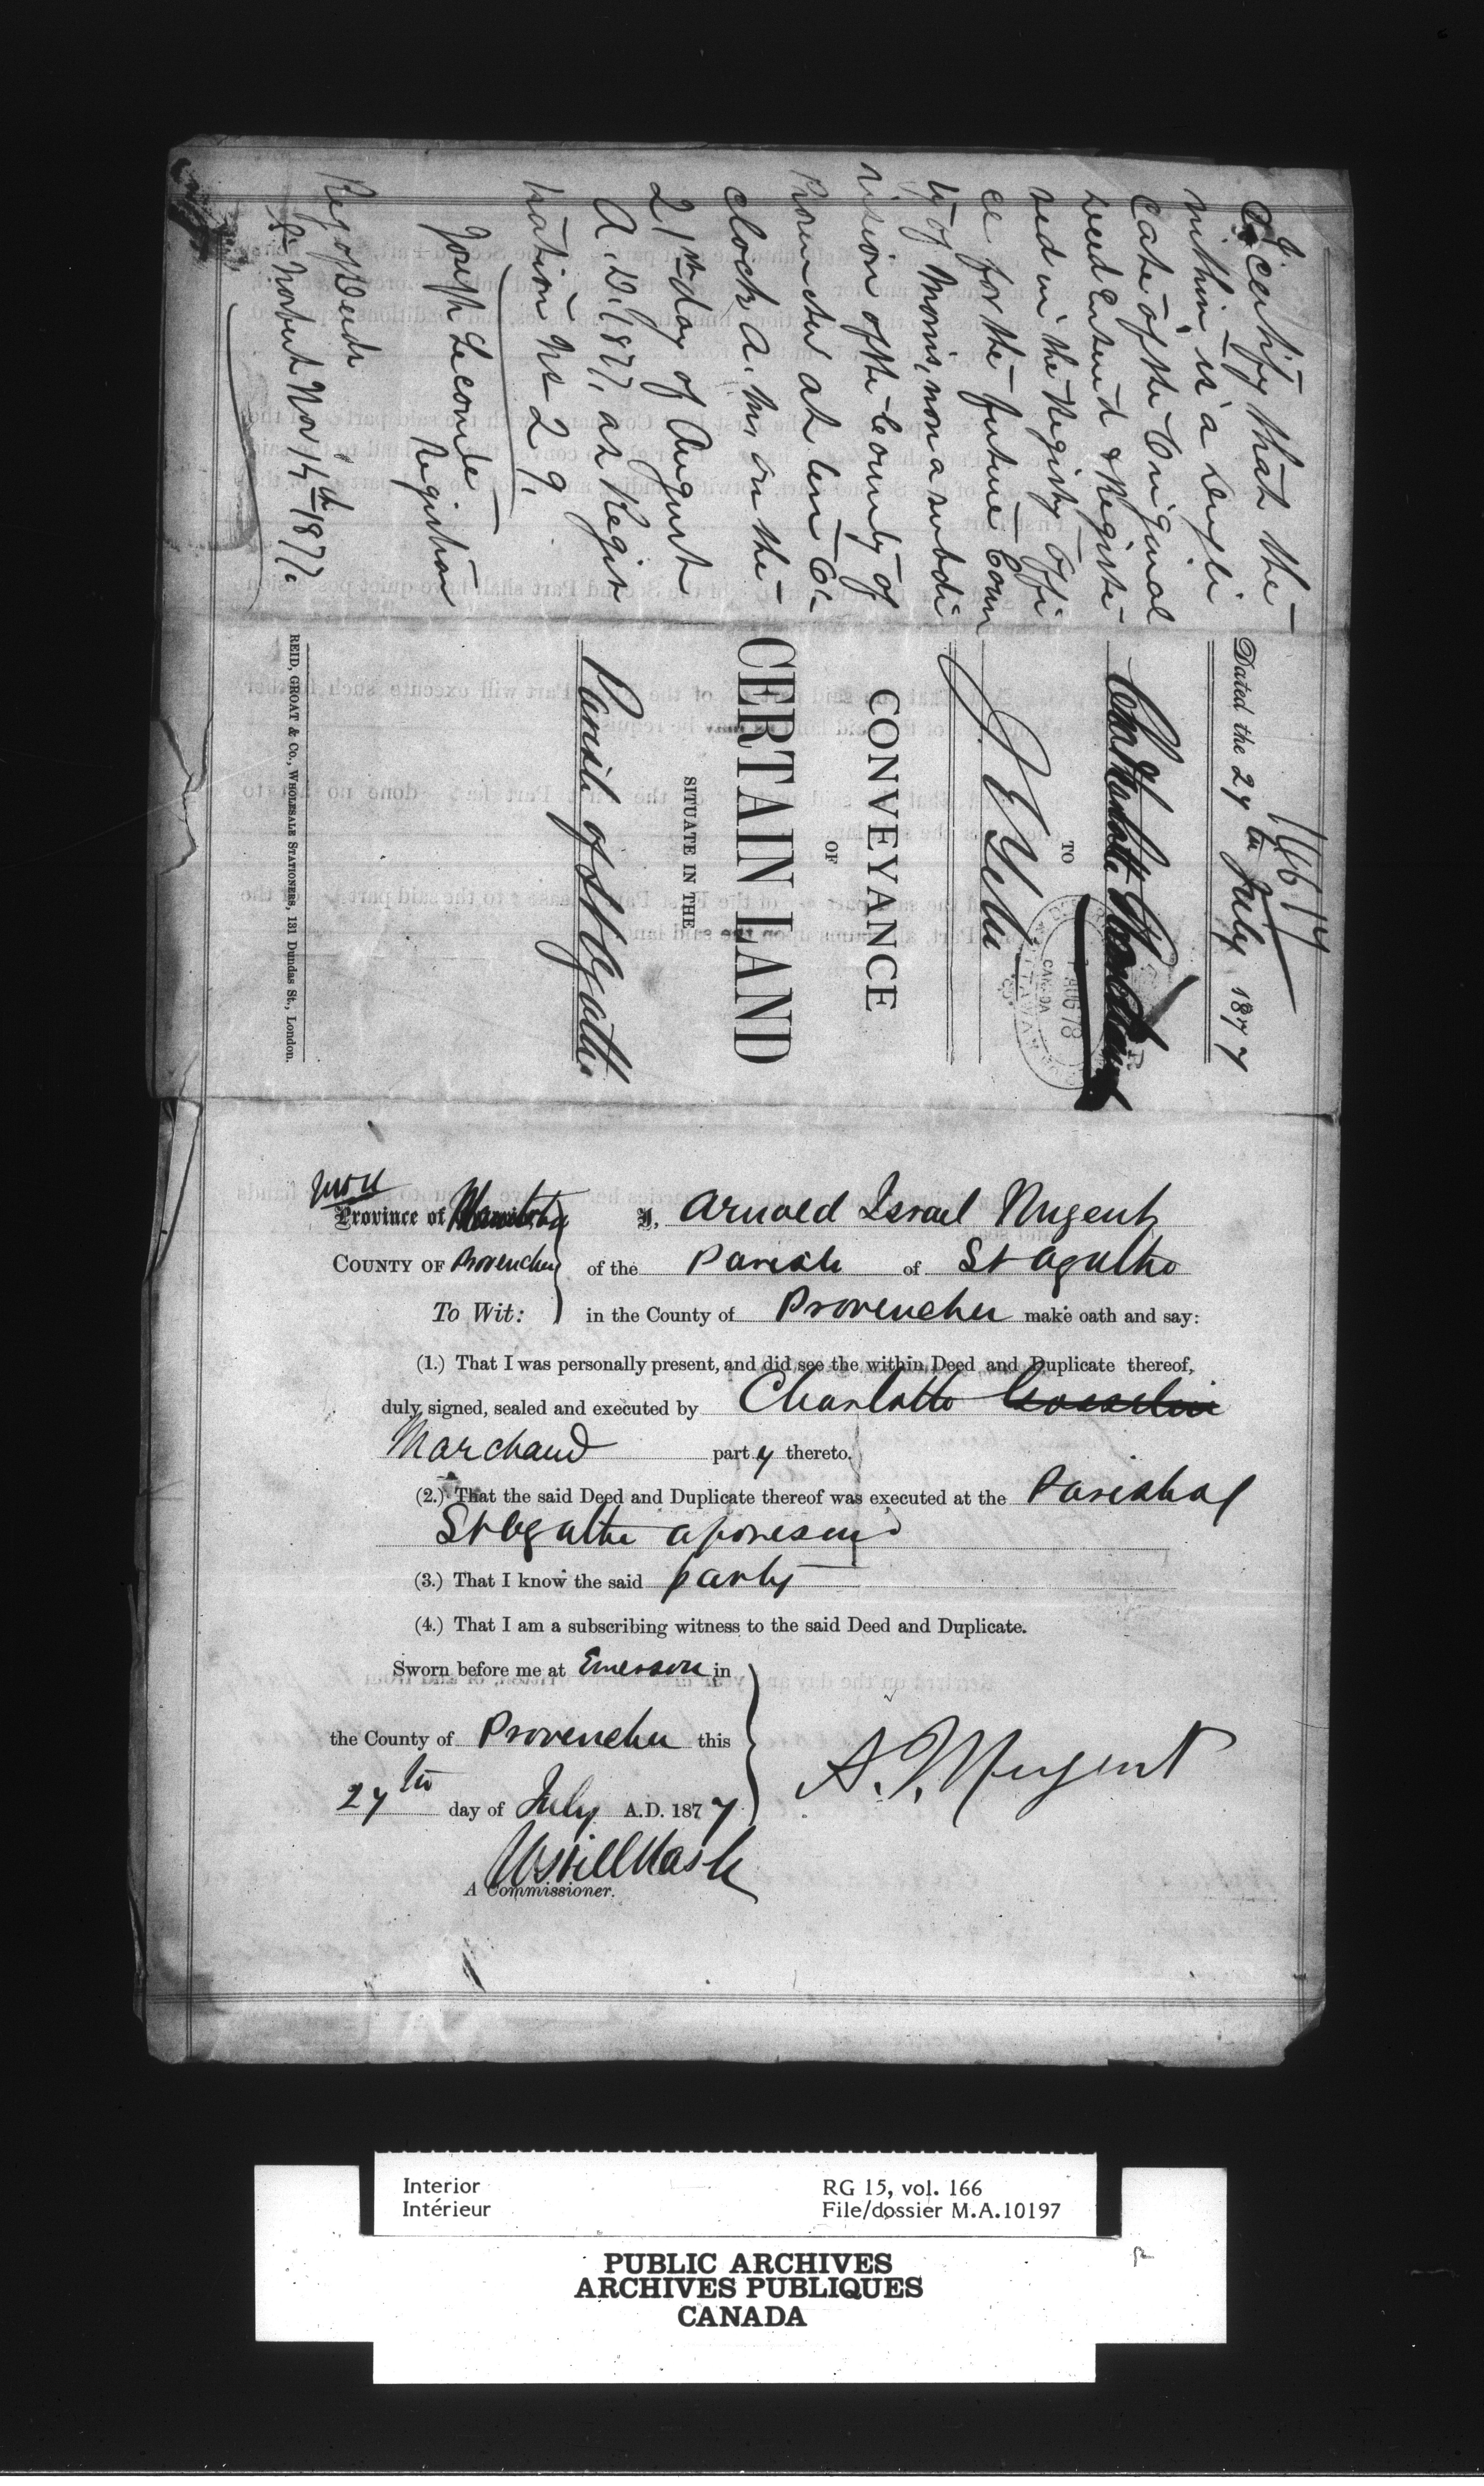 I certify that the
within is a Dupli
cate of the Original
Deed Entered & Registe-
red in the Registry Offi
ce for the future Coun
ty of Morris, now a subdi
vision of the County of
Provencher at ten O'-
clock A. M, on the
21st day of August
A. D. 1877, as Regis
tration No 29.
Joseph Lecomte
Registrar
Reg of Deeds
St Norbert Nov 14th 1877.
16614
Dated the 27th July 1877
Charlotte
TO
CONVEYANCE
OF
CERTAIN LAND
SITUATE IN THE
Parish of St Agathe
REID, GROAT & Co., WHOLESALE STATIONERS, 131 Dundas St., London.
AUG 78
CANADA
Province of Manitoba I, Arnold Israel Nugent
COUNTY OF Provencher of the Parish of St Agathe
To Wit: in the County of Provencher make oath and say:
(1.) That I was personally present, and did see the within Deed and Duplicate thereof,
duly signed, sealed and executed by Charlotte Gosselin
Marchand party thereto.
(2.) That the said Deed and Duplicate thereof was executed at the Parish of
St Agathe aforesaid
(3.) That I know the said party
(4.) That I am a subscribing witness to the said Deed and Duplicate.
Sworn before me at Emerson in
the County of Provencher this
27th day of July A.D. 1877
A. I. Nugent
A Commissioner.
Interior
Intérieur
RG 15, vol. 166
File/dossier M.A.10197
PUBLIC ARCHIVES
ARCHIVES PUBLIQUES
CANADA